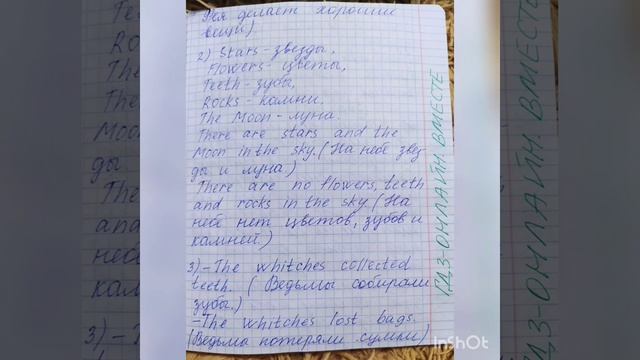 Фея делает хорошие
вещи)
2) Stars - звезды,
Flowers - цветы,
Teeth - зубы,
Rocks - камни.
The Moon - луна.
There are stars and the
Moon in the sky. (На небе звез-
ды и луна)
There are no flowers, teeth
and rocks in the sky. (На
небе нет цветов, зубов и
камней.)
3) - The whitches collected
teeth. (Ведьмы собирали
зубы.)
- The whitches lost bags.
(Ведьма потеряли сумки)
ГДЗ-ОНЛАЙН ВМЕСТЕ
InShOt